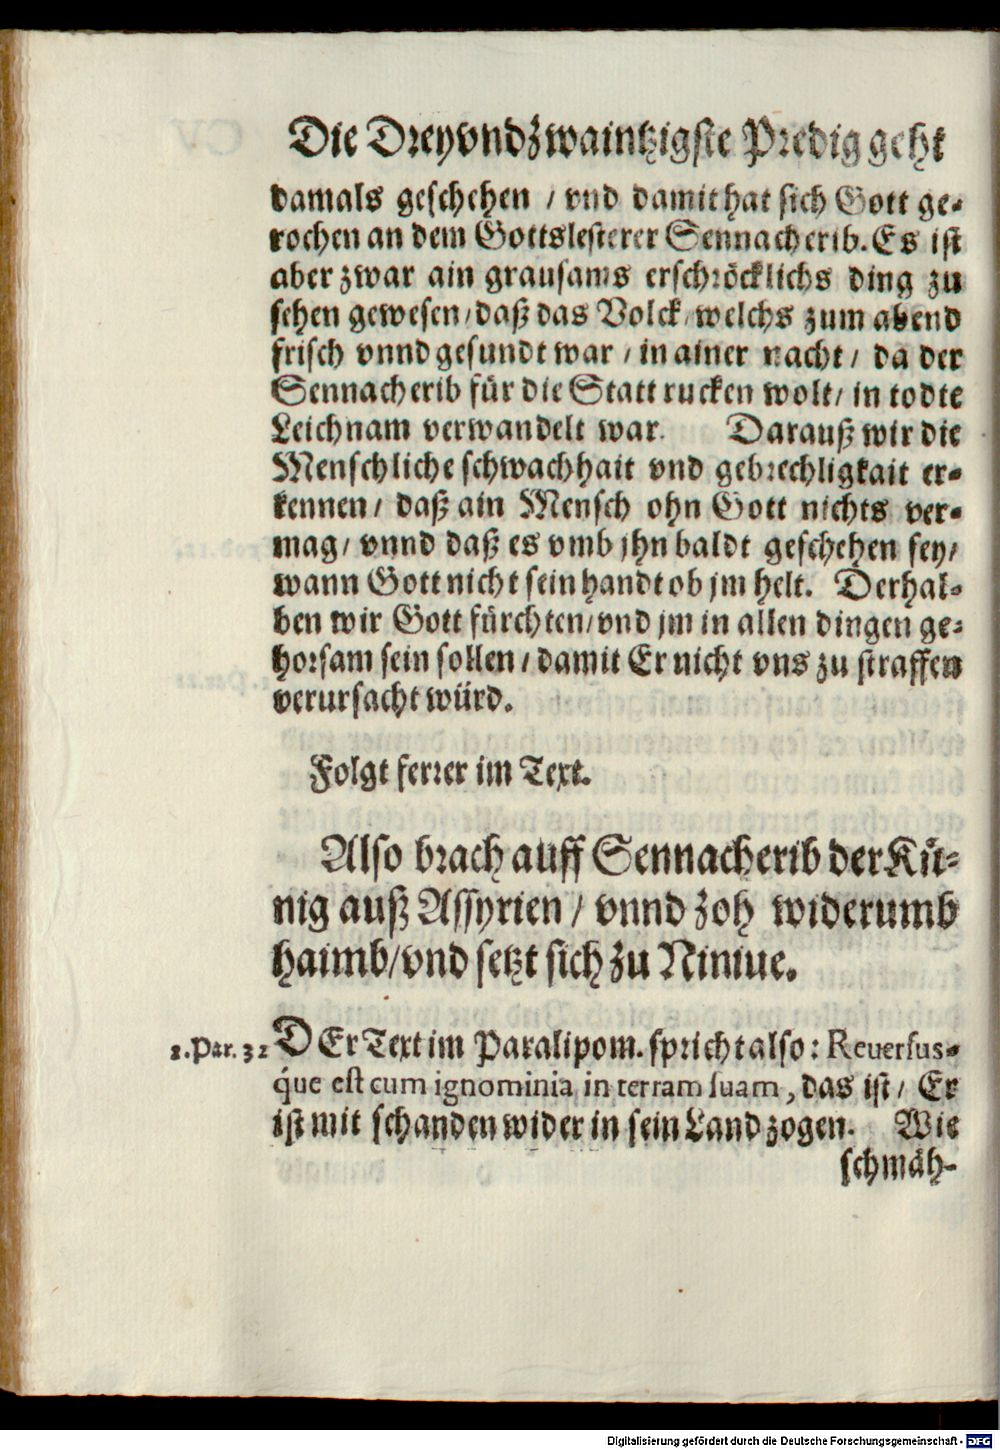 Die Dreyvndzwaintzigste Predig geht
damals geschehen / vnd damit hat sich Gott ge-
rochen an dem Gottslesterer Sennacherib. Es ist
aber zwar ain grausams erschröcklichs ding zu
sehen gewesen / daß das Volck / welchs zum abend
frisch vnnd gesundt war / in ainer nacht / da der
Sennacherib für die Statt rucken wolt / in todte
Leichnam verwandelt war. Darauß wir die
Menschliche schwachhait vnd gebrechligkait er-
kennen / daß ain Mensch ohn Gott nichts ver-
mag / vnnd daß es vmb jhn baldt geschehen sey /
wann Gott nicht sein handt ob jm helt. Derhal-
ben wir Gott fürchten / vnd jm in allen dingen ge-
horsam sein sollen / damit Er nicht vns zu straffen
verursacht würd.
Folgt ferrer im Text.
Also brach auff Sennacherib der Kü-
nig auß Assyrien / vnnd zoh widerumb
haimb / vnd setzt sich zu Niniue.
2. Par. 32 DEr Text im Paralipom. spricht also: Reuersus-
q́ue est cum ignominia in terram suam, das ist / Er
ist mit schanden wider in sein Land zogen. Wie
schmäh-
Digitalisierung gefördert durch die Deutsche Forschungsgemeinschaft - DFG